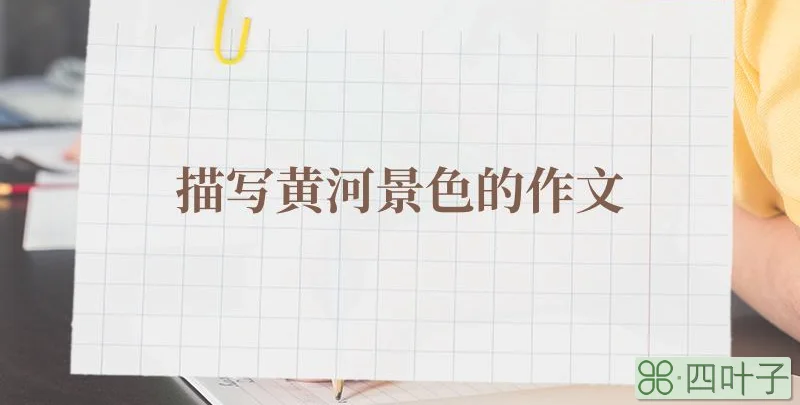 描写黄河景色的作文
四叶子